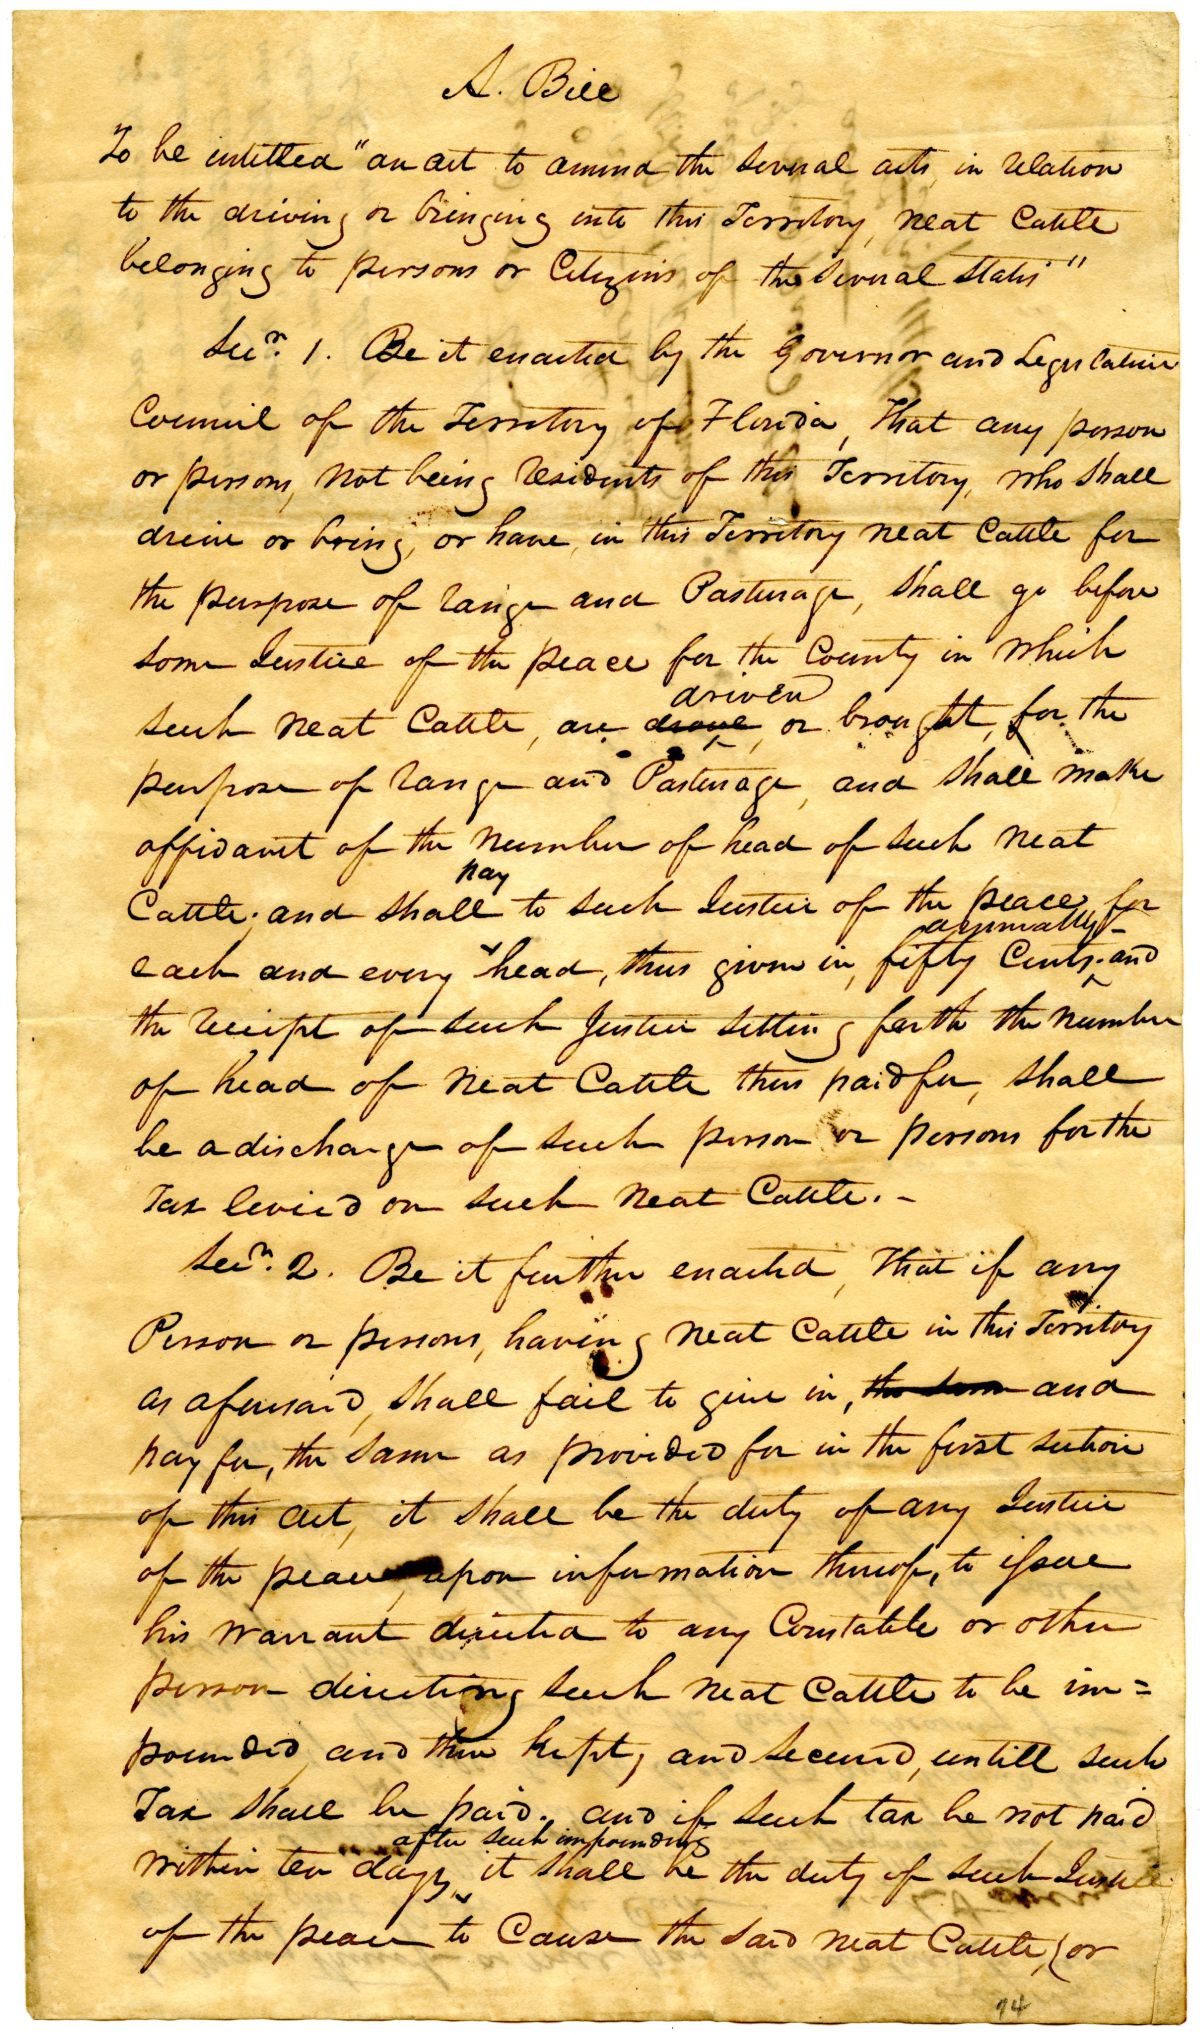 A. Bill
To be intitled "an act to amend the several acts, in relation
to the driving or bringing into this Territory, neat Cattle
belonging to persons or Citizens of the several States"
Secn. 1. Be it enacted by the Governor and Legislative
Council of the Territory of Florida, That any person
or persons, not being residents of this Territory, who shall
drive or bring, or have, in this Territory neat Cattle for
the purpose of range and Pasturage, shall go before
some Justice of the peace for the County in which
driven
such neat Cattle, are drove, or brought, for the
purpose of range and Pasturage, and shall make
affidavit of the number of head of such neat
pay
Cattle; and shall to such Justice of the peace, for
annually
each and every head, thus given in, fifty Cents; and
the receipt of such Justice setting forth the number
of head of neat Cattle thus paid for, shall
be a discharge of such person or persons for the
Tax levied on such neat Cattle. -
Secn. 2. Be it further enacted, That if any
Person or persons, having neat Cattle in this Territory
as aforesaid, shall fail to give in, the same and
pay for, the same as provided for in the first section
of this act, it shall be the duty of any Justice
of the peace, upon information thereof, to issue
his warrant directed to any Constable or other
person directing such neat Cattle to be im=
pounded, and then kept, and secured, untill such
Tax shall be paid, and if such tax be not paid
after such impounding
within ten days, it shall be the duty of such Justice
of the peace to Cause the said neat Cattle, (or
94